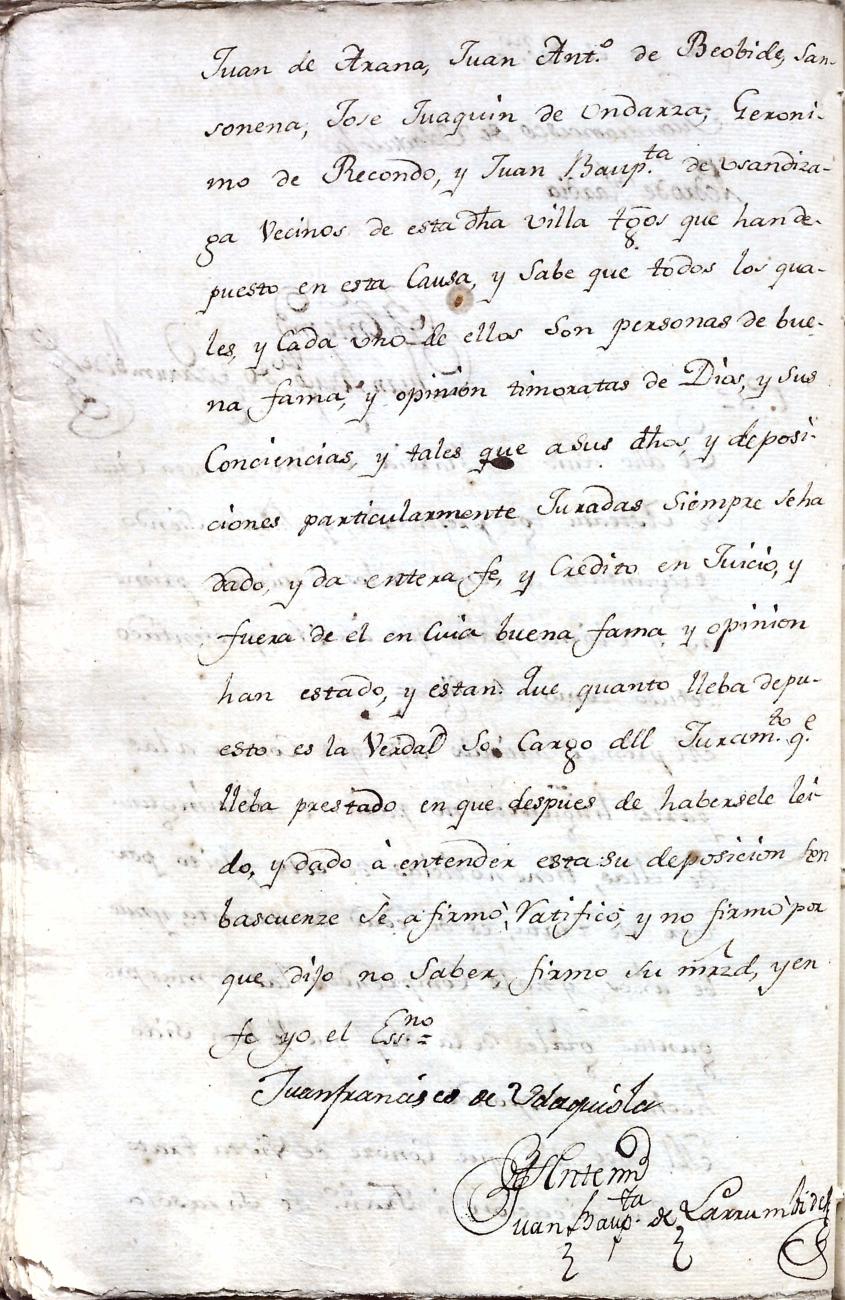 Juan de Arana, Juan Ant.º de Beobide, San-
sonena, Jose Juaquin de Undarza, Geroni-
mo de Recondo, y Juan Baup.ta de Usandiza-
ga Vecinos de esta dha villa tgos que han de-
puesto en esta Causa, y Sabe que todos los qua-
les, y Cada uno de ellos Son personas de bue-
na fama, y opinion timoratas de Dios, y Sus
Conciencias, y tales que a Sus dhos, y deposi-
ciones particularmente Juradas Siempre se ha
dado, y da entera fe, y Credito en Juicio, y
fuera de el en Cuia buena fama y opinion
han estado, y estan. Que quanto lleba depu-
esto es la Verdad So Cargo dll Juram.to q.e
lleba prestado en que despues de habersele lei-
do, y dado à entender esta su deposicion en
bascuenze se afirmó, Ratificó, y no firmó por
que dijo no Saber, firmo su mrzd, y en
fe yo el Ess.no =
Juan francisco de Udaquiola
Antemi
Juan Baup.ta de Larrumbide